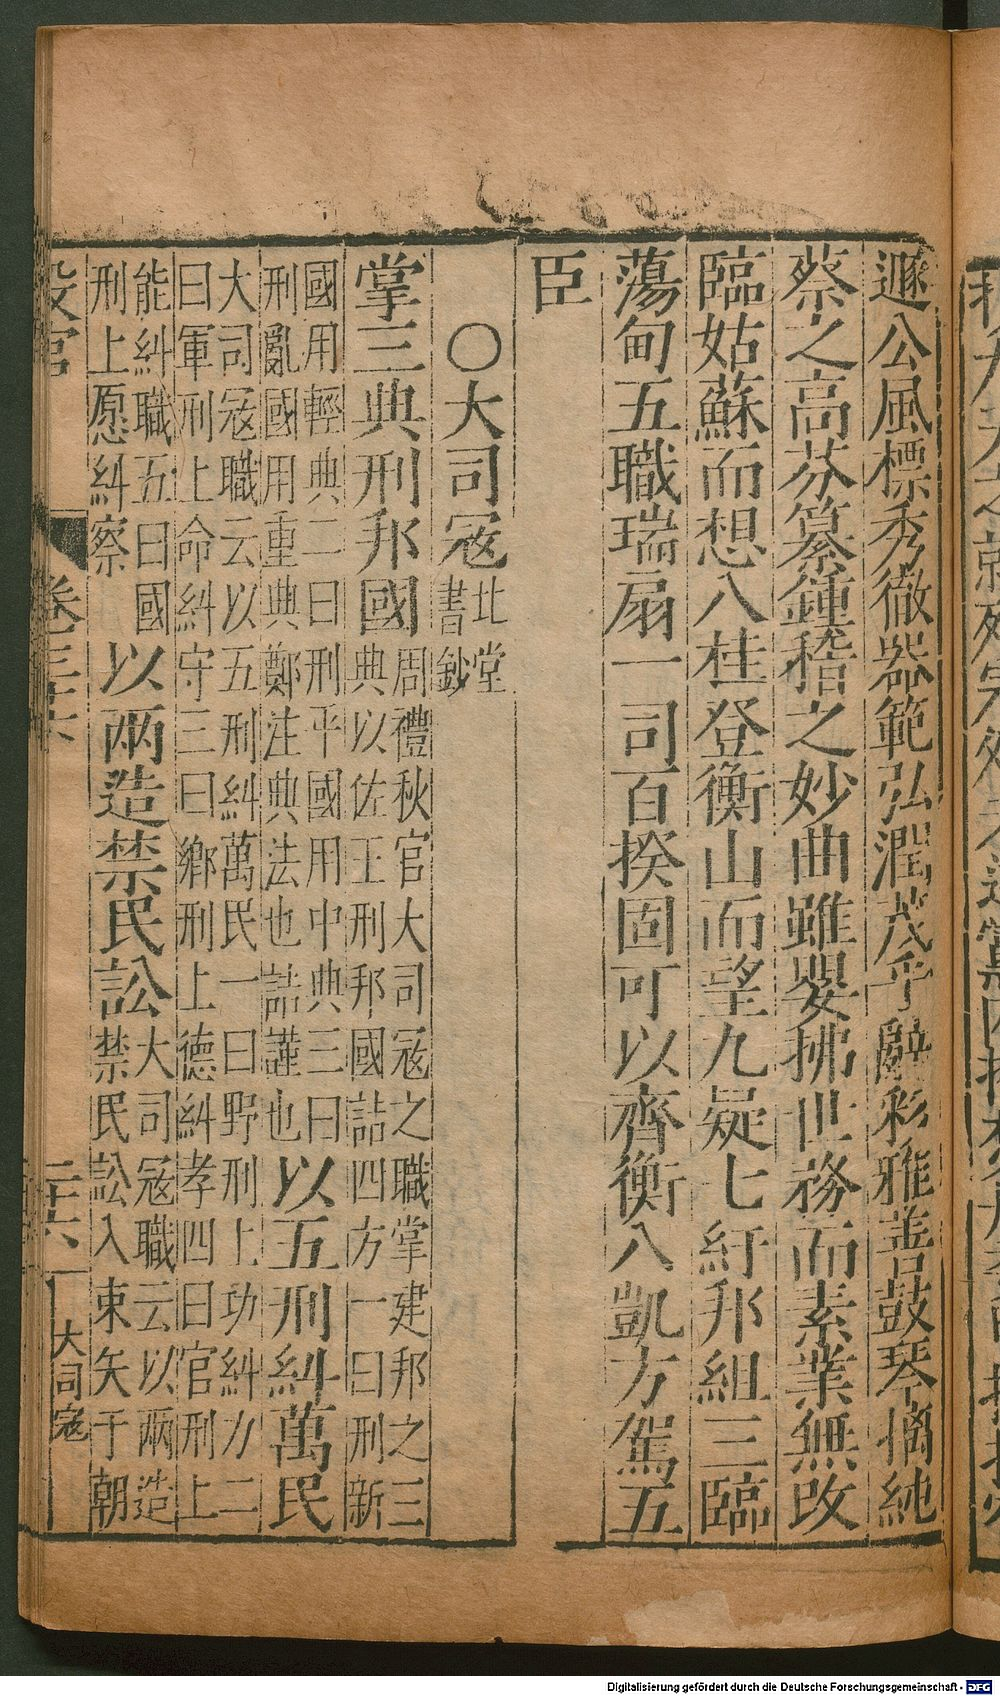 遯公風標秀徹器範弘潤茂乎辭彩雅善鼓琴摛純
蔡之高芬纂鍾稽之妙曲雖嬰拂世務而素業無改
臨姑蘇而想八桂登衡山而望九疑七紆邦組三臨
蕩甸五職瑞扇一司百揆固可以齊衡八凱方駕五
臣
〇大司宼
北堂
書鈔
掌三典刑邦國
周禮秋官大司宼之職掌建邦之三
典以佐王刑邦國詰四方一曰刑新
國用輕典二曰刑平國用中典三曰
刑亂國用重典鄭注典法也詰謹也
以五刑糾萬民
大司宼職云以五刑糾萬民一曰野刑上功糾力二
曰軍刑上命糾守三曰鄉刑上德糾孝四曰官刑上
能糾職五曰國
刑上愿糾察
以兩造禁民訟
大司宼職云以兩造
禁民訟入束矢于朝
設官
卷三十六
二十六
大司宼
Digitalisierung gefördert durch die Deutsche Forschungsgemeinschaft - DFG